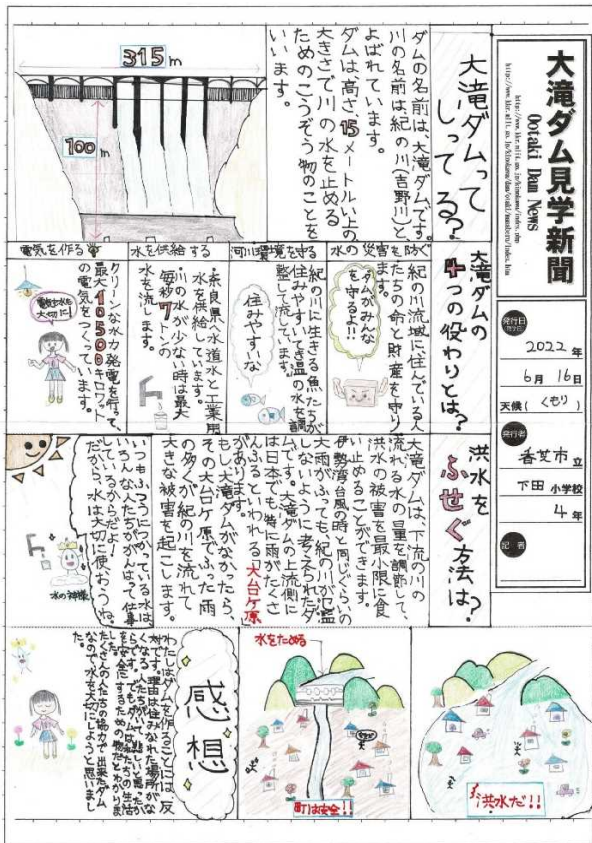 大滝ダム見学新聞
Ootaki Dam News
発行日
2022年
6月16日
天候(くもり)
発行者
香芝市立
下田小学校
4年
記者
大滝ダムって
しってる?
ダムの名前は、大滝ダムです。
川の名前は紀の川(吉野川)と
よばれています。
ダムは、高さ15メートル以上の
大きさで川の水を止める
ためのこうぞう物のことを
いいます。
315m
100m
大滝ダムの
4つの役わりとは?
水の災害を防ぐ
紀の川流域に住んでいる人
たちの命と財産を守り
ます。
ダムがみんな
を守るよ!!
河川環境を守る
紀の川に生きる魚たちが
住みやすいてき温の水を調
整して流しています。
住みやすいな
水を供給する
・奈良県へ水道水と工業用
水を供給しています。
・川の水が少ない時は最大
毎秒7トンの
水を流します。
電気を作る
クリーンな水力発電を行って、
最大10500キロワット
の電気をつくっています。
電気も水も
大切に!
洪水を
ふせぐ方法は?
大滝ダムは、下流の川の
流れる水の量を調節して、
洪水の被害を最小限に食
い止めることができます。
伊勢湾台風の時と同じぐらいの
大雨がふっても、紀の川が氾濫
しないように考えられたダ
ムです。大滝ダムの上流側に
は日本でも特に雨がたくさ
んふるといわれる「大台ケ原」
があります。
もし大滝ダムがなかったら、
その大台ケ原でふった雨
の多くが紀の川を流れて
大きな被害を起こします。
いつもふつうにつかっている水は、
いろんな人たちががんばって仕事
しているからだよ!
だから、水は大切に使おうね。
水の神様
洪水だ!!
水をためる
町は安全!!
感想
わたしはダムを作ることには、反
対です。理由は住みなれた場所がな
くなる人たちがいて悲しいと思ったか
らです。でもダムは私たちの生活
を安全にするための物だとわかりま
した。
たくさんの人たちの協力で出来たダム
なので水を大切にしようと思いまし
た。